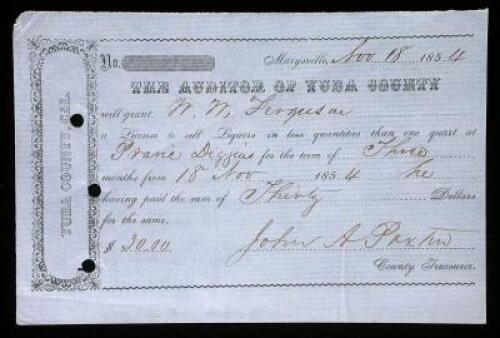 YUBA COUNTY, CAL.
No. Marysville, Nov 18 1854
THE AUDITOR OF YUBA COUNTY
will grant W. W. Ferguson
a License to sell Liquors in less quantities than one quart at
Pravie Diggins for the term of Three
months from 18 Nov 1854 he
having paid the sum of Thirty Dollars
for the same.
$ 30.00 John A Paxton
County Treasurer.